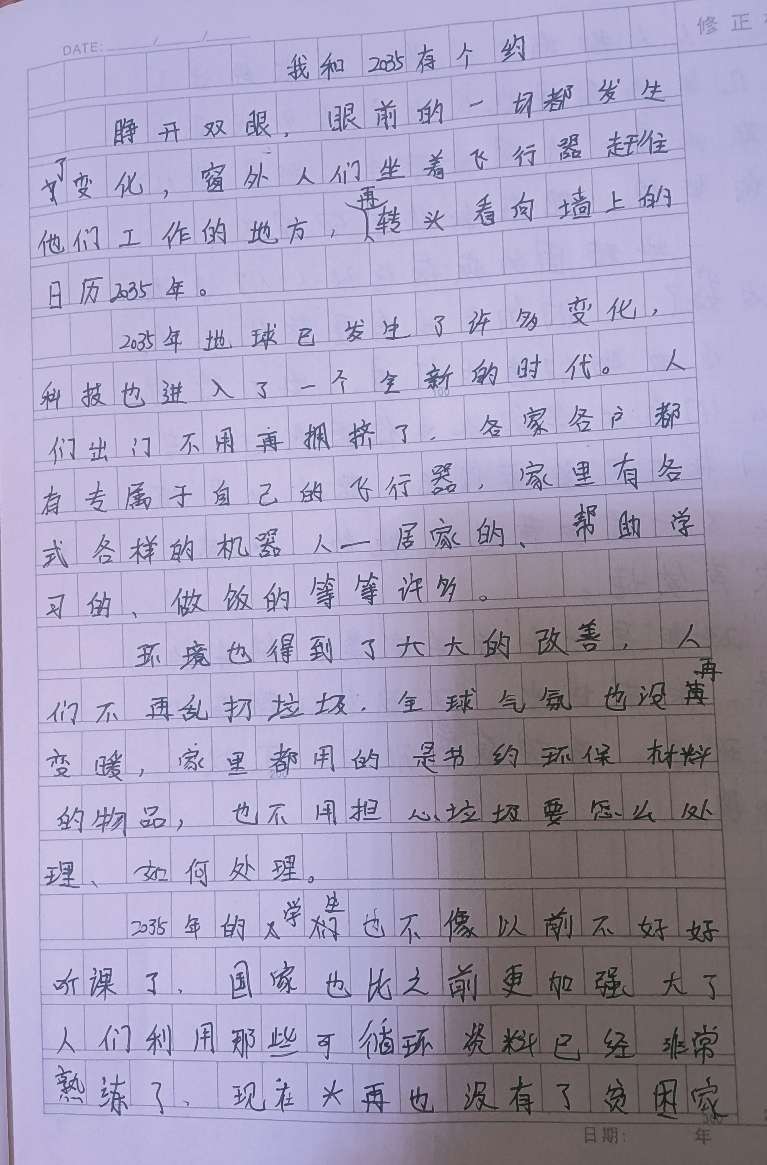 DATE: / /
修正
我和2035有个约
睁开双眼，眼前的一切都发生
了变化，窗外人们坐着飞行器赶往
他们工作的地方，再转头看向墙上的
日历2035年。
2035年地球已发生了许多变化，
科技也进入了一个全新的时代。人
们出门不用再拥挤了．各家各户都
有专属于自己的飞行器，家里有各
式各样的机器人一居家的、帮助学
习的、做饭的等等许多。
环境也得到了大大的改善，人
们不再乱扔垃圾．全球气氛也没再
变暖，家里都用的是节约环保材料
的物品，也不用担心垃圾要怎么处
理、如何处理。
2035年的学生们也不像以前不好好
听课了、国家也比之前更加强大了
人们利用那些可循环资料已经非常
熟练了、现在再也没有了贫困家
日期： 年